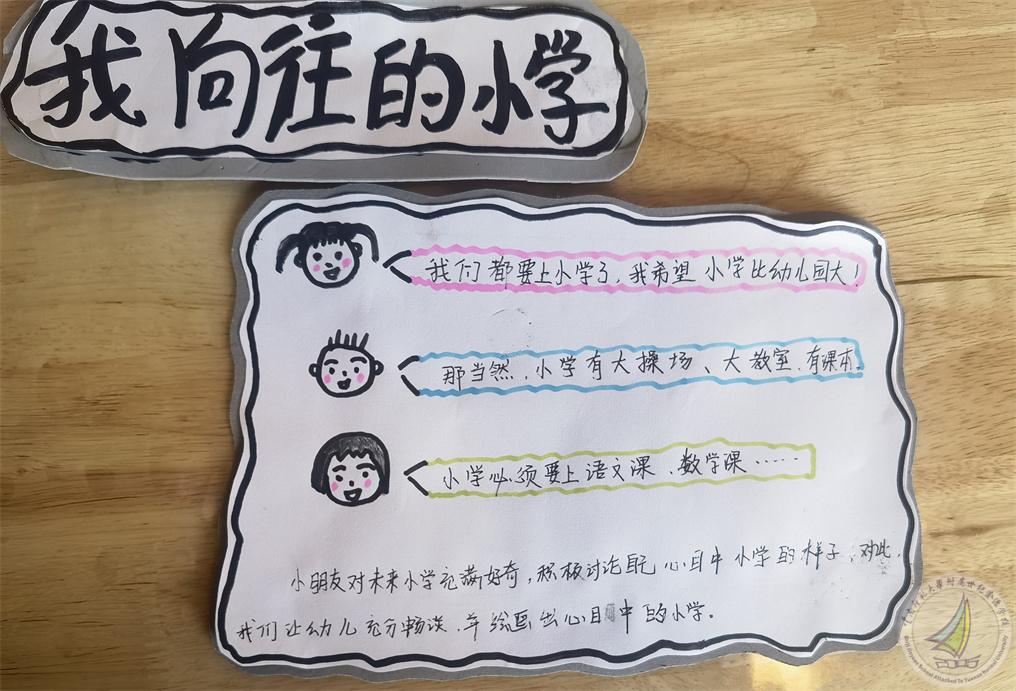 我向往的小学
我们都要上小学了，我希望小学比幼儿园大！
那当然，小学有大操场、大教室、有课本。
小学必须要上语文课、数学课……
小朋友对未来小学充满好奇，积极讨论自己心目中小学的样子，对此，
我们让幼儿充分畅谈，并绘画出心目中的小学。